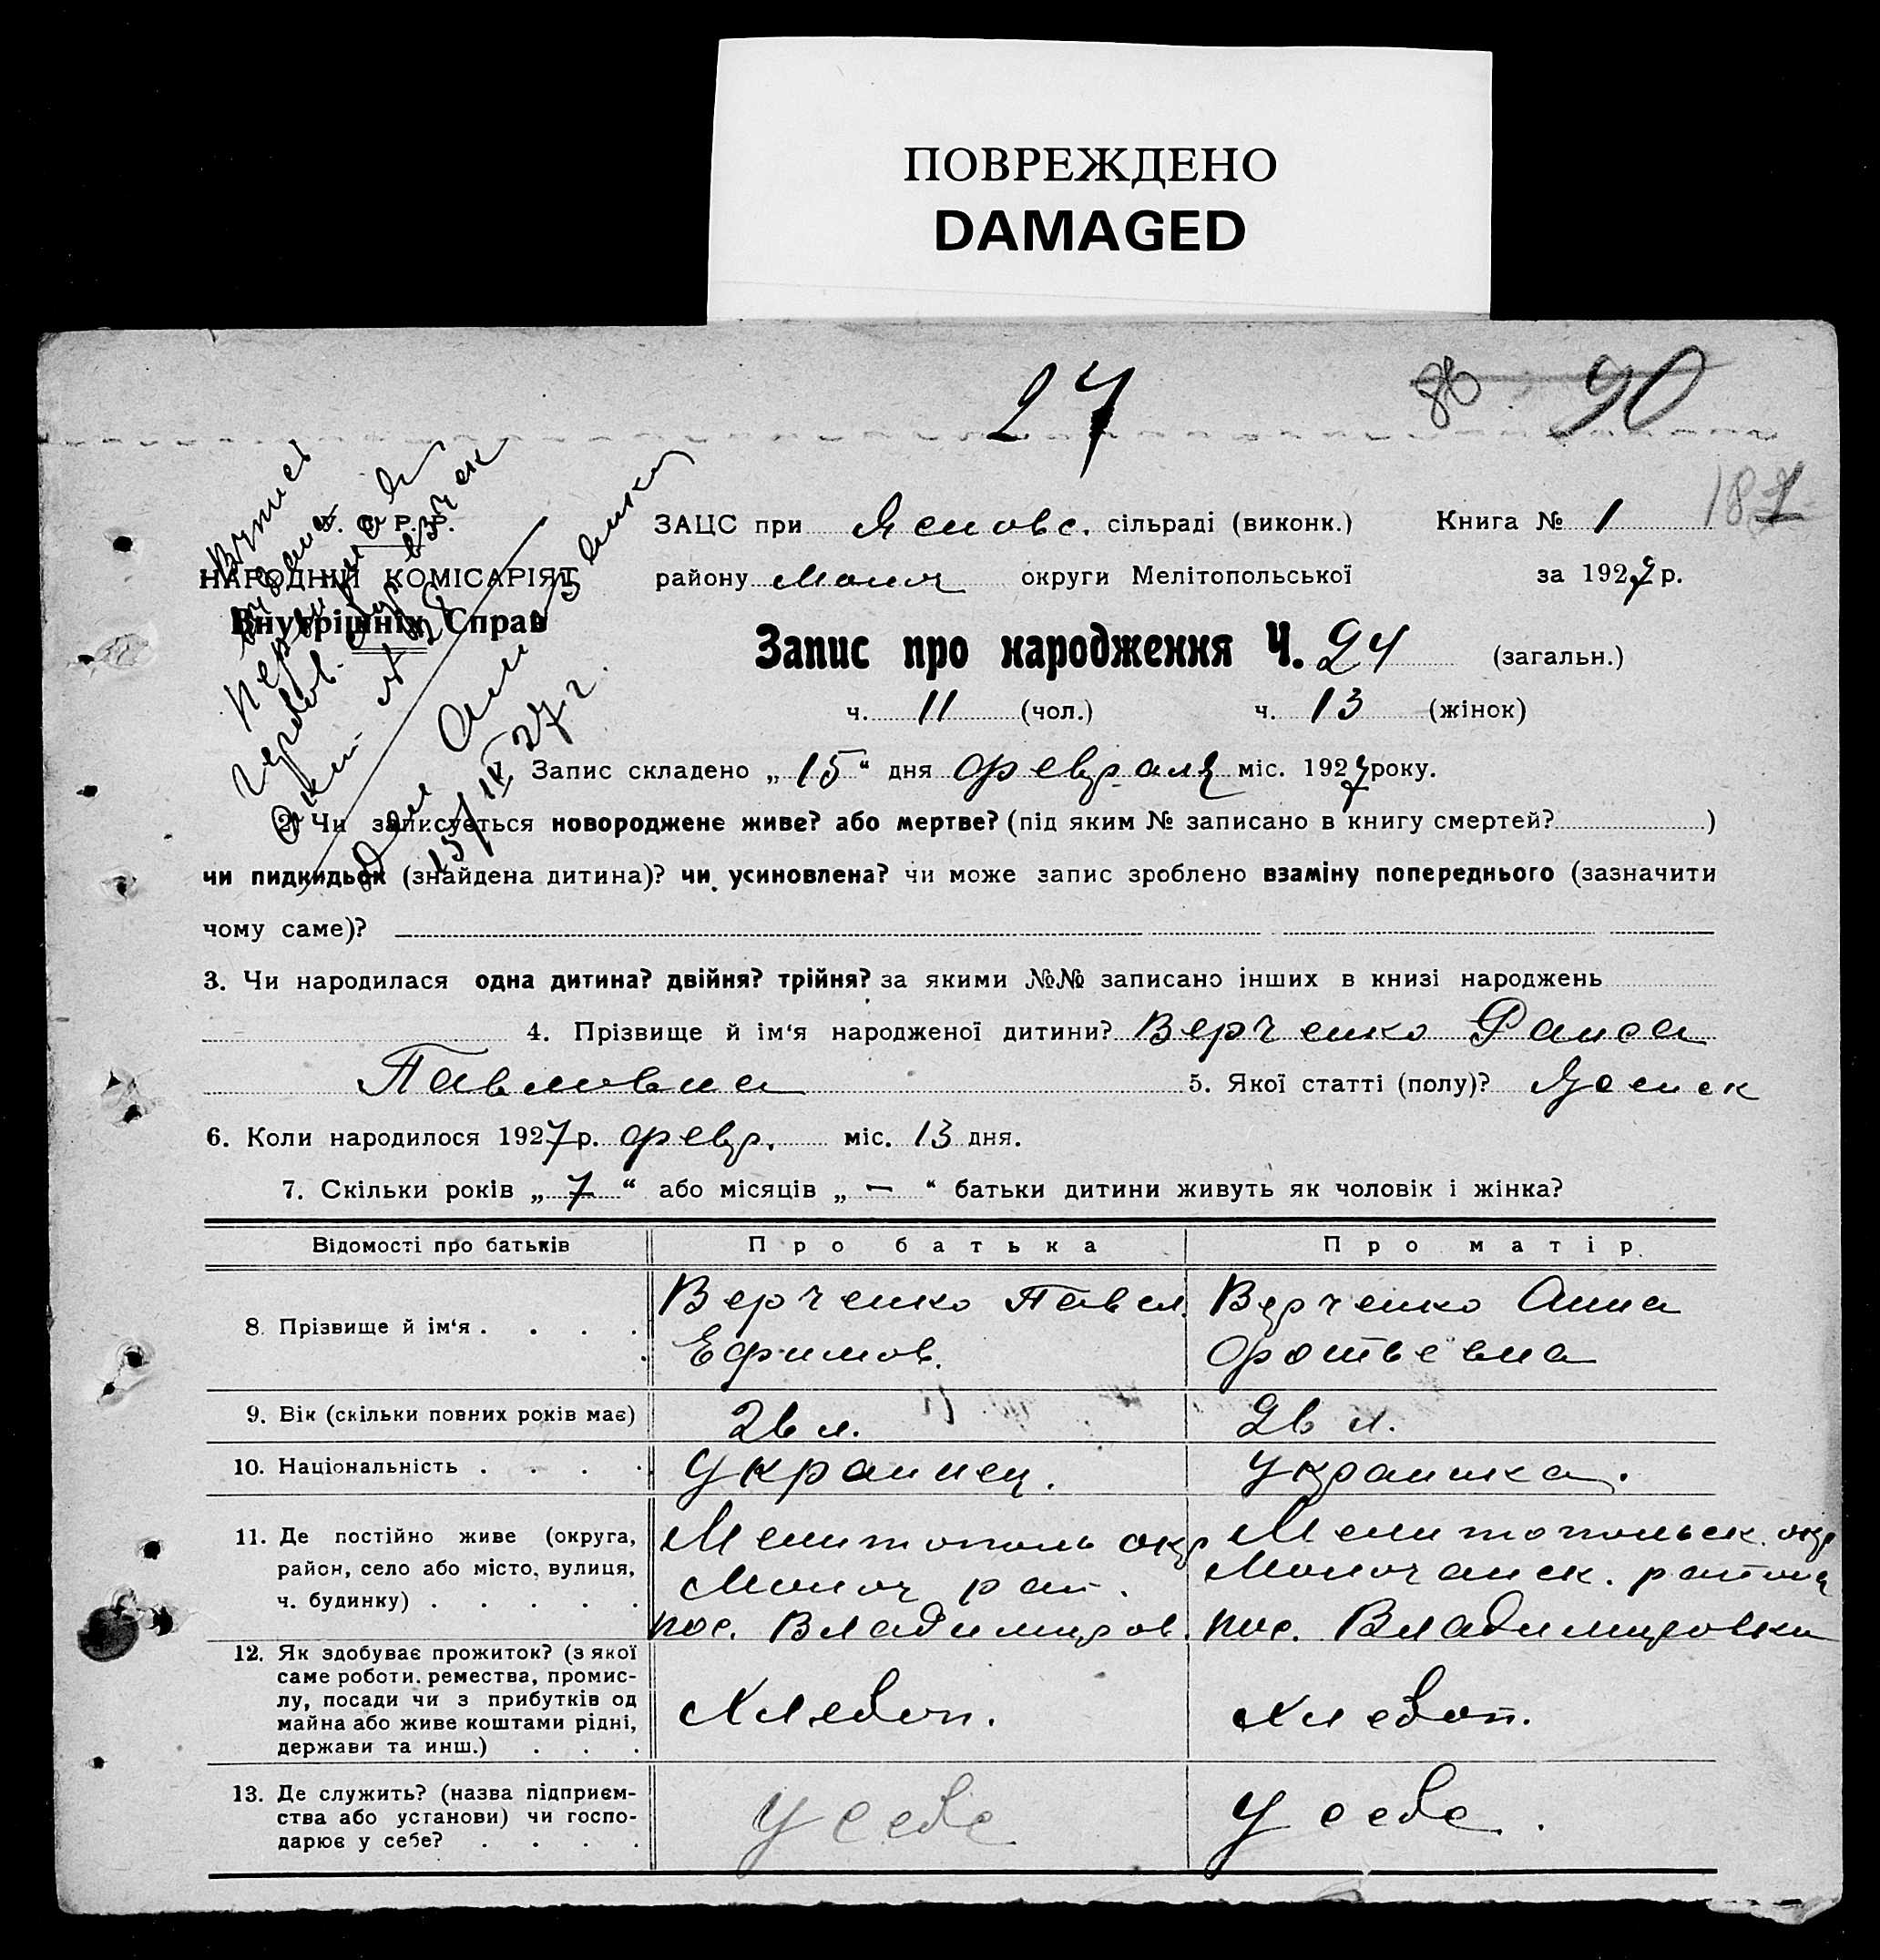 ПОВРЕЖДЕНО
DAMAGED
27
86 90
187
У. С. Р. Р.
НАРОДНІЙ КОМІСАРІЯТ
Внутрішніх Справ
ЗАЦС при Ясновс. сільраді (виконк.) Книга № 1
району Молоч округи Мелітопольської за 1927 р.
Запис про народження Ч. 24 (загальн.)
ч. 11 (чол.) ч. 13 (жінок)
15/IV 27 г.
1. Запис складено „ 15 “ дня февраля міс. 1927 року.
2. Чи записується новороджене живе? або мертве? (під яким № записано в книгу смертей? )
чи пидкидьок (знайдена дитина)? чи усиновлена? чи може запис зроблено взаміну попереднього (зазначити
чому саме)?
3. Чи народилася одна дитина? двійня? трійня? за якими №№ записано інших в книзі народжень
4. Прізвище й ім‘я народженої дитини? Верченко Раиса
Павловна 5. Якої статті (полу)? Женск
6. Коли народилося 1927 р. февр. міс. 13 дня.
7. Скільки років „ 7 “ або місяців „ — “ батьки дитини живуть як чоловік і жінка?
Відомості про батьків Про батька Про матір
8. Прізвище й ім‘я . . . . Верченко Павел Верченко Анна
Ефимов.
9. Вік (скільки повних років має) 26 л. 26 л.
10. Національність . . . . Украинец. Украинка.
11. Де постійно живе (округа, Мелитополь окр Мелитопольск. окр
район, село або місто, вулиця, Молоч рай. Молочанск. района
ч. будинку) . . . . . пос. Владимиров. пос. Владимировка
12. Як здобуває прожиток? (з якої
саме роботи, ремества, промис-
лу, посади чи з прибутків од Хлебоп. Хлебоп.
майна або живе коштами рідні,
держави та инш.) . . .
13. Де служить? (назва підприєм-
ства або установи) чи госпо- у себе у себе.
дарює у себе? . . . .